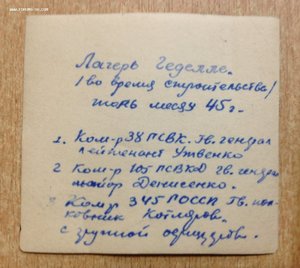 Лагерь Геделле.
/во время строительства/
июнь месяц 45 г.
1. Ком-р 38 ГСВК. Гв. генерал
лейтенант Утвенко
2 Ком-р 105 ГСВКД гв. генерал
майор Денисенко.
3 Ком-р 345 ГОССП Гв. пол-
ковник Котляров.
с группой офицерства.